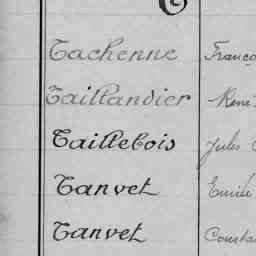 Tachenne Franço
Taillandier René
Taillebois Jules
Tanvet Emile
Tanvet Consta